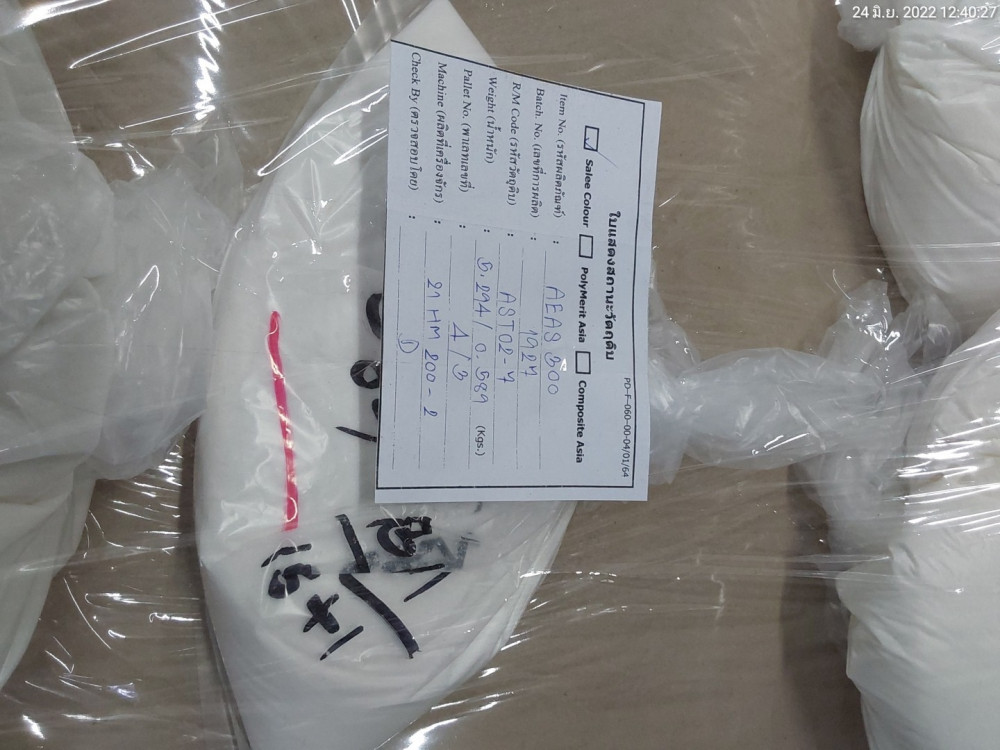 24 มิ.ย. 2022 12:40:27
PD-F-060-00-04/01/64
ใบแสดงสถานะวัตถุดิบ
Salee Colour PolyMerit Asia Composite Asia
Item No. (รหัสผลิตภัณฑ์) : AEAS 500
Batch. No. (เลขที่การผลิต) : 1927
R/M Code (รหัสวัตถุดิบ) : AST02-7
Weight (น้ำหนัก) : 5.294/0.589 (Kgs.)
Pallet No. (พาเลทเลขที่) : 4/3
Machine (ผลิตที่เครื่องจักร) : 21 HM 200-2
Check By (ตรวจสอบโดย) :